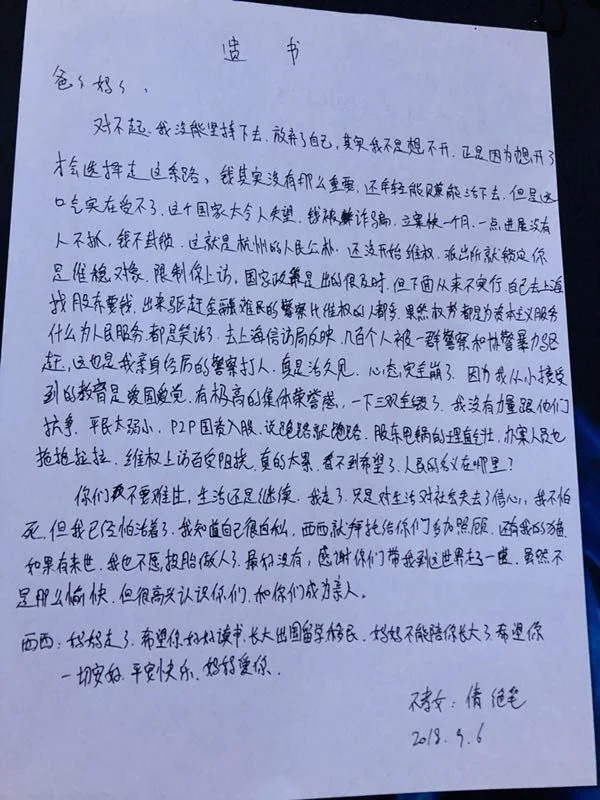 遗 书
爸爸妈妈、
对不起、我没能坚持下去、放弃了自己，其实我不是想不开．正是因为想开了
才会选择走这条路、钱其实没有那么重要．还年轻能赚能活下去．但是这
口气实在受不了．这个国家太令人失望．钱被诈骗，立案快一个月．一点进展没有
人不抓，钱不封锁．这就是杭州的人民公朴．还没开始维权．派出所就锁定你
是维稳对象．限制你上访，国家政策是出的很及时．但下面从来不实行．自己去上海
找股东要钱．出来驱赶金融难民的警察比维权的人都多．果然权势都是为资本主义服务
什么为人民服务．都是笑话了．去上海信访局反映．几百个人被一群警察和协警暴力驱
赶．这也是我亲自经历的警察打人．真是活久见．心态完全崩了．因为我从小接受
到的教育是爱国爱党．有极高的集体荣誉感．一下三观全毁了．我没有力量跟他们
抗争．平民太弱小．P2P国资入股．说跑路就跑路．股东甩锅的理直气壮．办案人员也
拖拖拉拉．维权上访百受阻挠．真的太累．看不到希望了．人民的名义在哪里？
你们不要难过．生活还是继续．我走了．只是对生活对社会失去了信心，我不怕
死．但我已经怕活着了．我知道自己很自私，西西就拜托给你们多加照顾．还有我的猫．
如果有来世．我也不愿投胎做人了．最好没有，感谢你们带我到这世界走了一趟．虽然不
是那么愉快．但很高兴认识你们．和你们成为亲人。
西西：妈妈走了．希望你好好读书．长大出国留学移民．妈妈不能陪你长大了．希望你
一切安好．平安快乐．妈妈爱你．
不孝女：倩 绝笔
2018．9．6